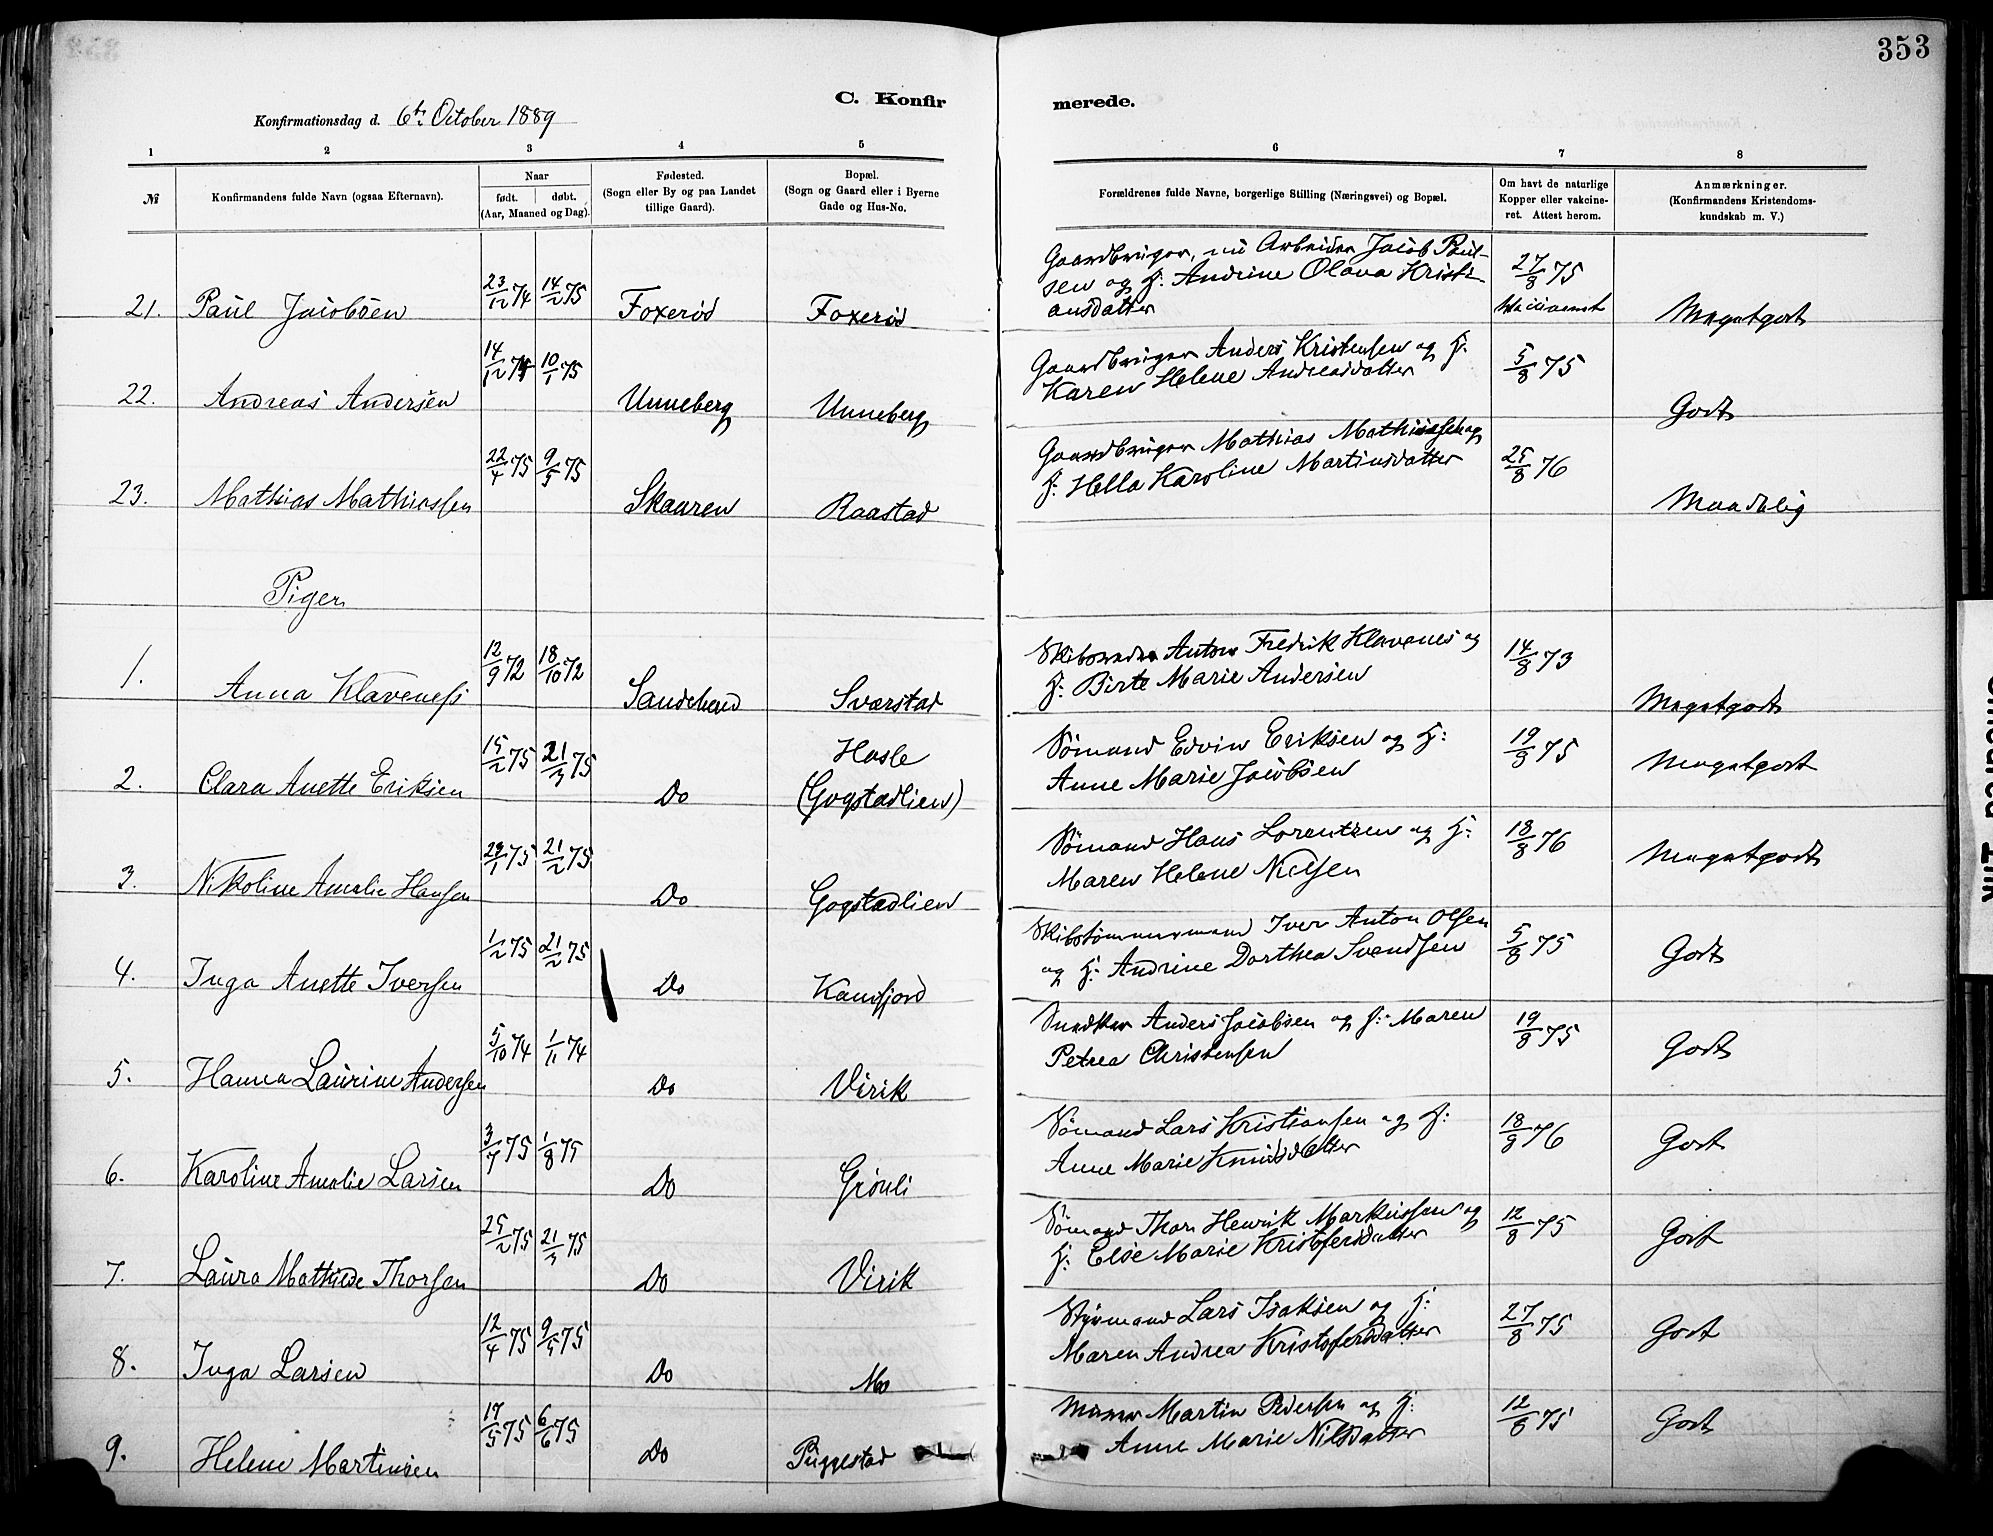 353
C. Konfirmerede.
Konfirmationsdag d. 6te October 1889
1 2 3 4 5 6 7 8
№
Konfirmandens fulde Navn (ogsaa Efternavn).
Naar
født. døbt.
(Aar, Maaned og Dag).
Fødested.
(Sogn eller By og paa Landet
tillige Gaard).
Bopæl.
(Sogn og Gaard eller i Byerne
Gade og Hus-No.
Forældrenes fulde Navne, borgerlige Stilling (Næringsvei) og Bopæl.
Om havt de naturlige
Kopper eller vakcine-
ret. Attest herom.
Anmærkninger.
(Konfirmandens Kristendoms-
kundskab m. V.)
21. Paul Jacobsen 23/12 74 14/2 75 Foxerød Foxerød
Gaardbruger, nu Arbeider Jacob Paul-
sen og H: Andrine Olava Kristi-
ansdatter
27/8 75
Meget godt
22. Andreas Andersen 14/12 74 10/1 75 Unneberg Unneberg
Gaardbruger Anders Kristensen og H:
Karen Helene Andreasdatter
5/8 75
Godt
23. Mathias Mathiassen 22/4 75 9/5 75 Skauren Raastad
Gaardbruger Mathias Mathiassen og
H: Hella Karoline Martinsdatter
25/8 76
Maadelig
Piger
1. Anna Klaveness 12/9 72 18/10 72 Sandeherred Sværstad
Skibsreder Anton Fredrik Klavenes og
H: Birte Marie Andersen
14/8 73
Meget godt
2. Clara Anette Eriksen 15/2 75 21/3 75 Do Hasle
(Gogstadlien)
Sømand Edvin Eriksen og H:
Anne Marie Jacobsen
19/8 75
Meget godt
3. Nikoline Amalie Hansen 29/1 75 21/2 75 Do Gogstadlien
Sømand Hans Lorentzen og H:
Maren Helene Nielsen
18/8 76
Meget godt
4. Inga Anette Iversen 1/2 75 21/2 75 Do Kamfjord
Skibstømmermand Iver Anton Olsen
og H: Andrine Dorthea Svendsen
5/8 75
Godt
5. Hanna Laurine Andersen 5/10 74 1/11 74 Do Virik
Snedker Anders Jacobsen og H: Maren
Petrea Christensen
19/8 75
Godt
6. Karoline Amalie Larsen 3/7 75 1/8 75 Do Grønli
Sømand Lars Kristiansen og H:
Anne Marie Knudsdatter
18/8 76
Godt
7. Laura Mathilde Thorsen 25/2 75 21/3 75 Do Virik
Sømand Thor Henrik Markussen og
H: Else Marie Kristofersdatter
12/8 75
Godt
8. Inga Larsen 12/4 75 9/5 75 Do Mo
Styrmand Lars Isaksen og H:
Maren Andrea Kristofersdatter
27/8 75
Godt
9. Helene Martinsen 17/5 75 6/6 75 Do Puggestad
Murer Martin Pedersen og H:
Anne Marie Nilsdatter
12/8 75
Godt